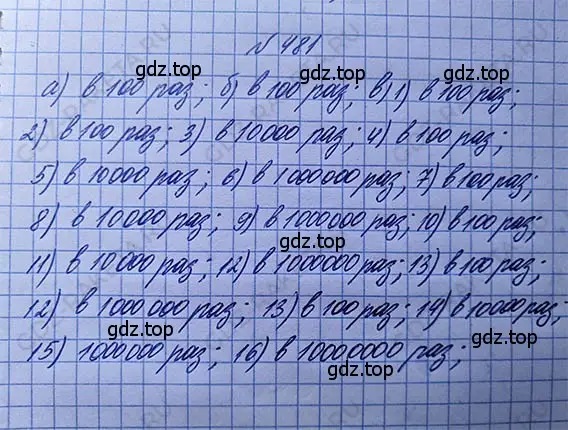 N 481
а) в 100 раз; б) в 100 раз; в) 1) в 100 раз;
2) в 100 раз; 3) в 10000 раз; 4) в 100 раз;
5) в 10000 раз; 6) в 1000000 раз; 7) в 100 раз;
8) в 10000 раз; 9) в 1000000 раз; 10) в 100 раз;
11) в 10000 раз; 12) в 1000000 раз; 13) в 100 раз;
12) в 1000 000 раз; 13) в 100 раз; 14) в 10000 раз;
15) 1000000 раз; 16) в 10000000 раз;
gdz.top
gdz.top
gdz.top
gdz.top
gdz.top
gdz.top